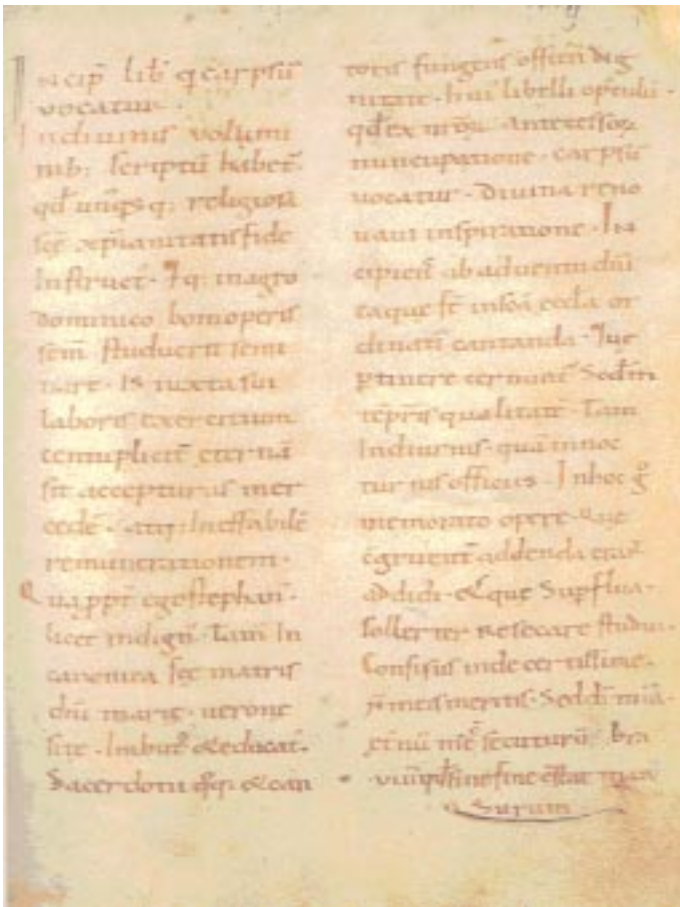 Incip lib q carpsū
vocatur.
In diuinis volumi
nib; scriptū habet
qd unqsq; religiosa
scę xp̄ianitatis fide
Instruct. Iq; in agro
dominico boni operis
sem studuerit semi
nare. Is iuxta sui
laboris exercitium
centuplicē eternā
sit accepturus mer
cedē Ineffabilē
remunerationem.
Qua ppt ego stephan.
licet indign. Tam In
canonica scę matris
dni marię. uerone
site. Imbut & educat.
Sacerdotii & can
toris fungens officii dig
nitate. hui libelli opusculū.
qd ex antecessoȝ
nuncupatione. carpsū
vocatur. Diuina reno
uaui inspiratione. In
cipiens ab aduentu dni
eaque in ecclā or
dinatī cantanda.
ptinere cernunt Sedm
tēpris qualitatē. Tam
In diurnis. quā in noc
turnis officiis. In hoc g
memorato opere. que
c̄gruent addenda erant
addidi. & que Supflua.
sollerter Resecare studui.
Confisus inde certissime.
n meis meritis. Sed di mia.
secuturū bra
viū sine fine
Surum